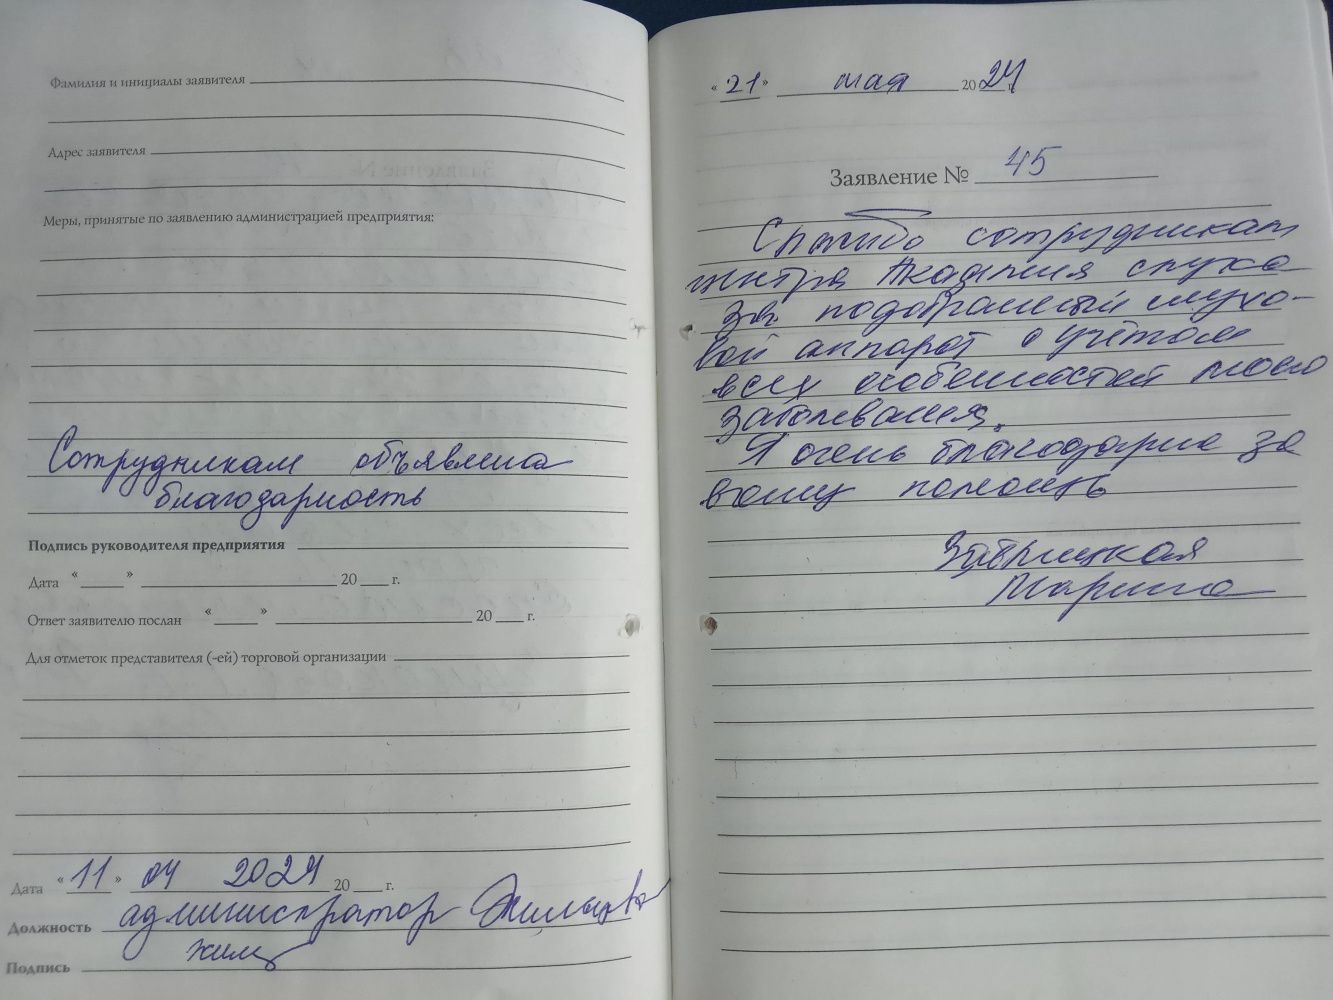 Фамилия и инициалы заявителя
Адрес заявителя
Меры, принятые по заявлению администрацией предприятия:
Сотрудникам объявлена
благодарность
Подпись руководителя предприятия
Дата « » 20 г.
Ответ заявителю послан « » 20 г.
Для отметок представителя (-ей) торговой организации
Дата «11» 04 2024 20 г.
Должность администратор
Подпись
«21» мая 2024 г.
Заявление № 45
Спасибо сотрудникам
центра Академия слуха
за подобранный слухо-
вой аппарат с учётом
всех особенностей моего
заболевания.
Я очень благодарна за
вашу помощь
Марина